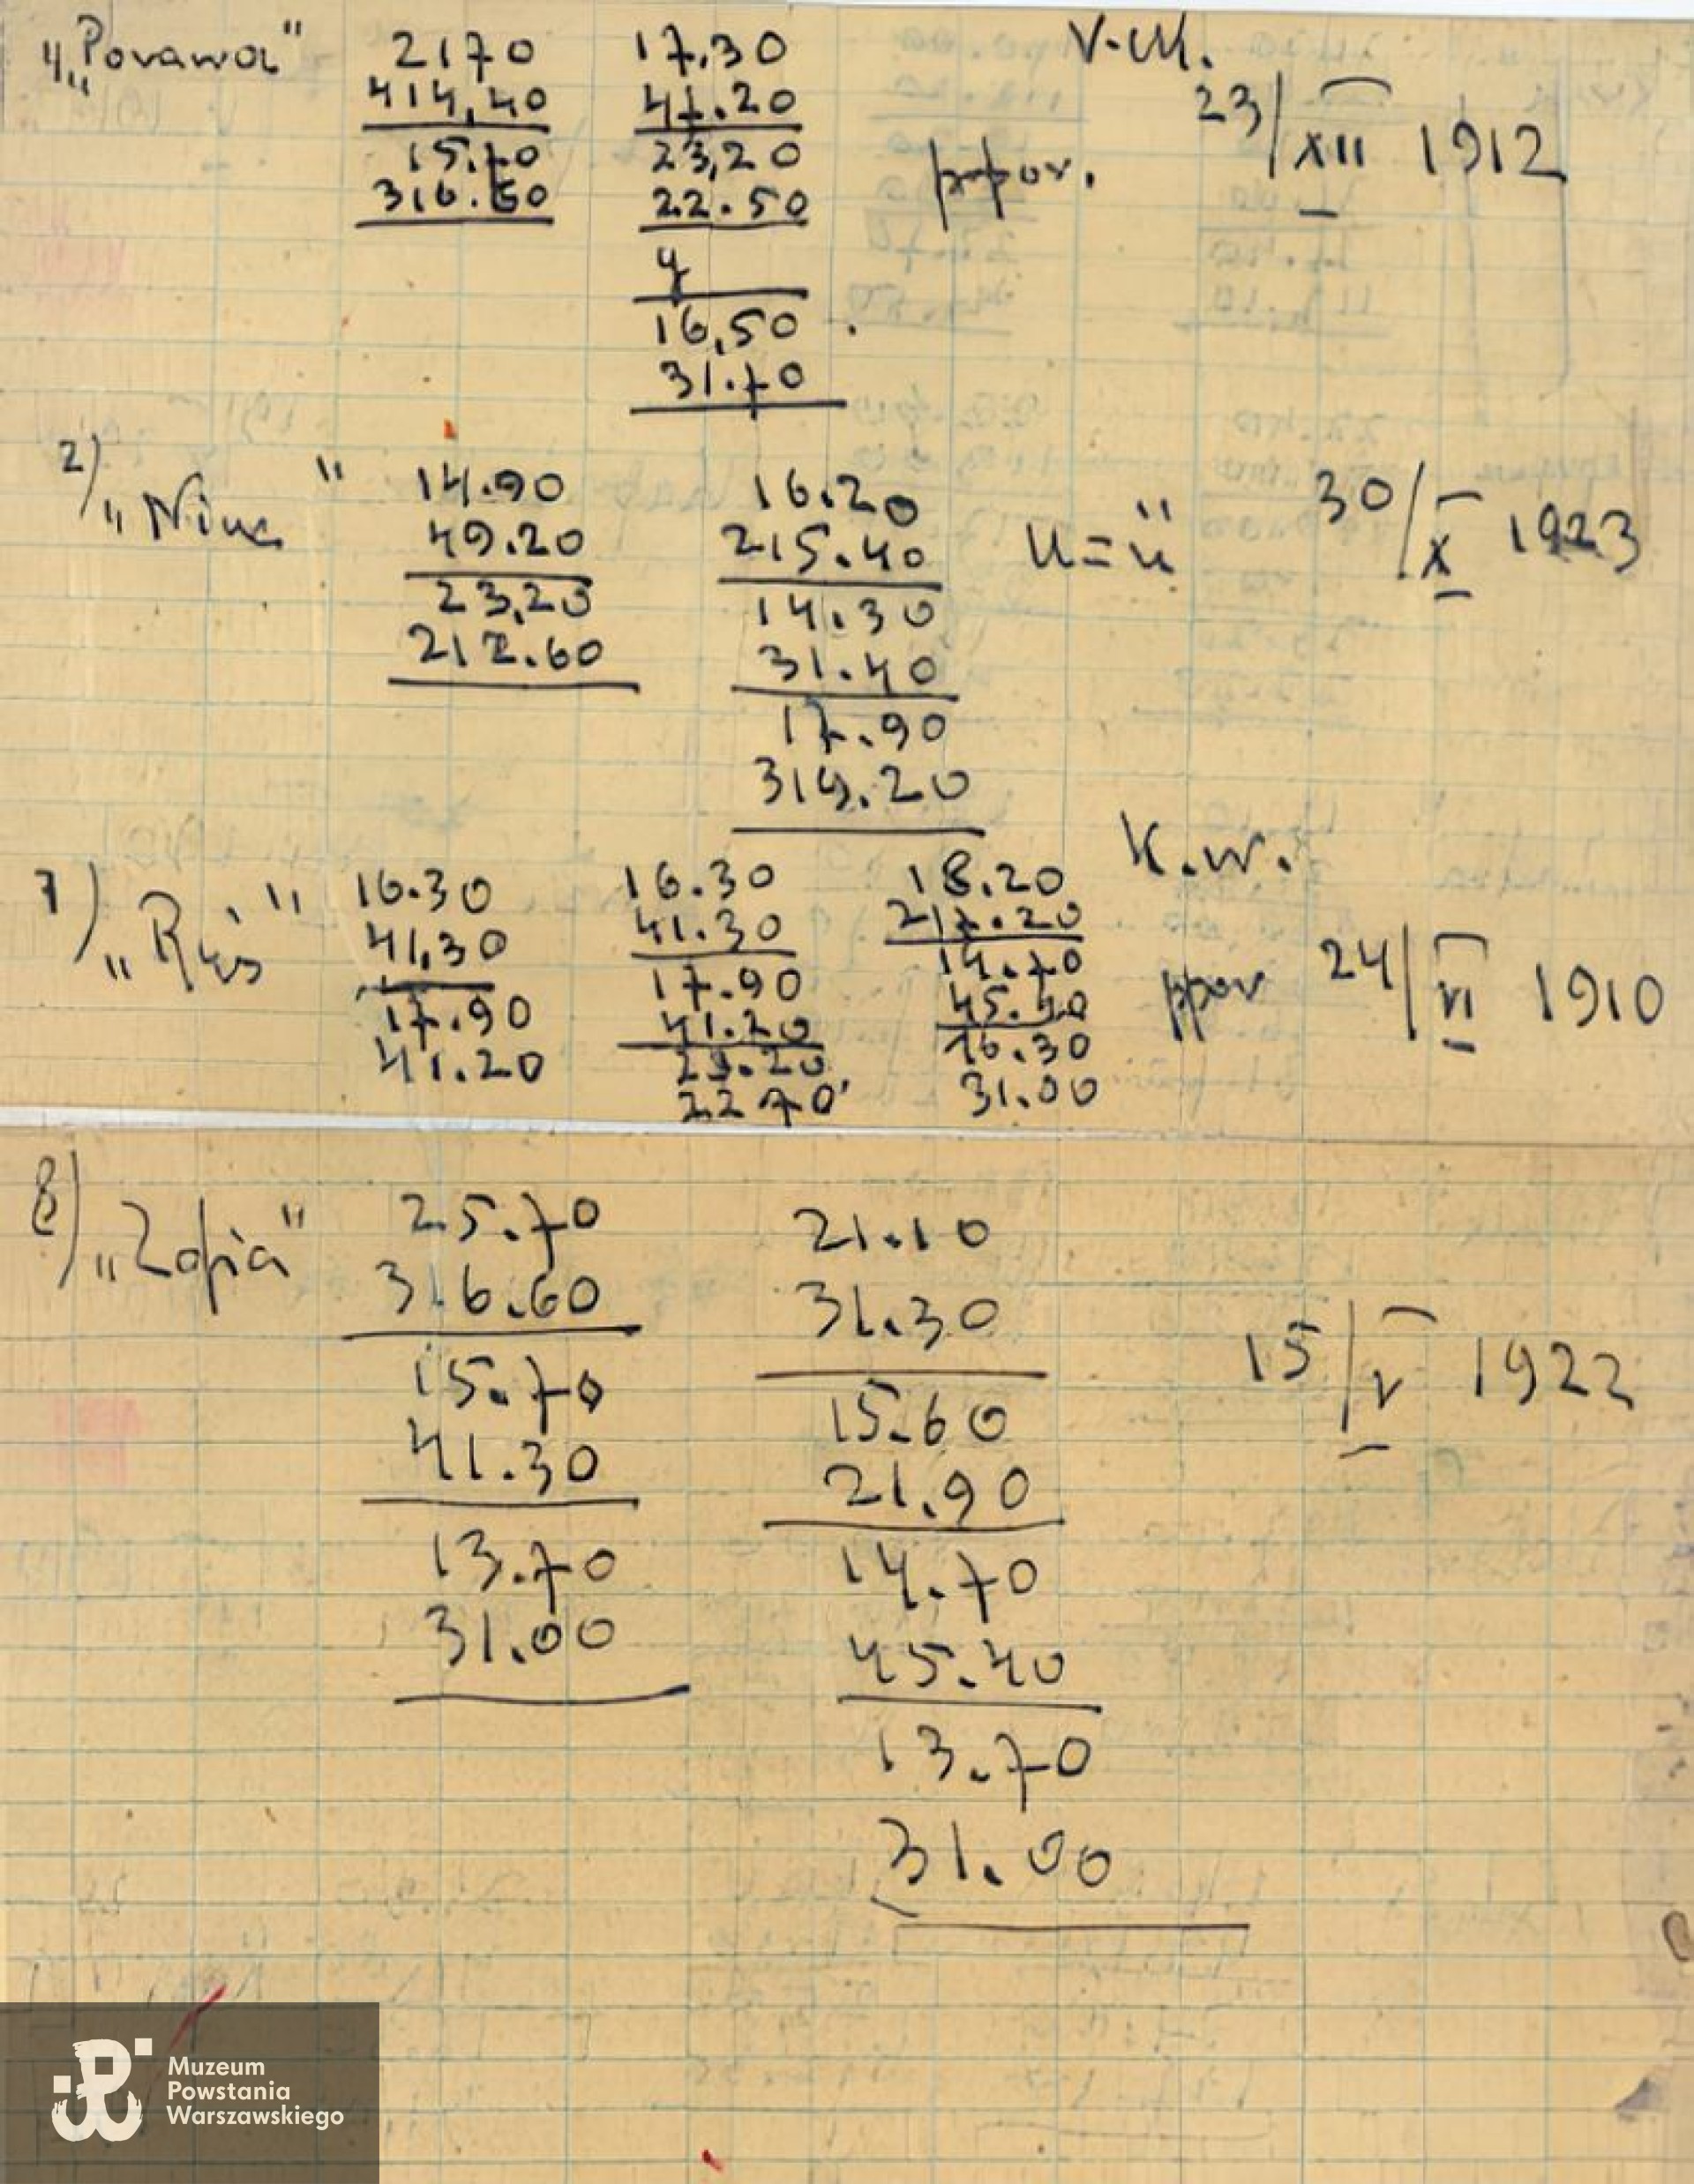 1) „Porawa" 2170 17,30 V.M.
414,40 41.20 23/XII 1912
15.70 23,20 ppor.
316.60 22.50
4
16,50
31.70
2) „Nina" 14.90 16.20 30/X 1923
49.20 215.40 U=ü
23,20 14.30
212.60 31.40
17.90
319.20
K.W.
7) „Ryś" 16.30 16.30 18.20
41,30 41.30 217.20
17.90 17.90 14.70 ppor 24/VI 1910
41.20 41.20 45.40
23.20 16.30
2270 31.00
8) „Zofia" 25.70 21.10
316.60 31.30
15.70 15.60 15/V 1922
41.30 21.90
13.70 14.70
31.00 45.40
13.70
31.00
Muzeum
Powstania
Warszawskiego